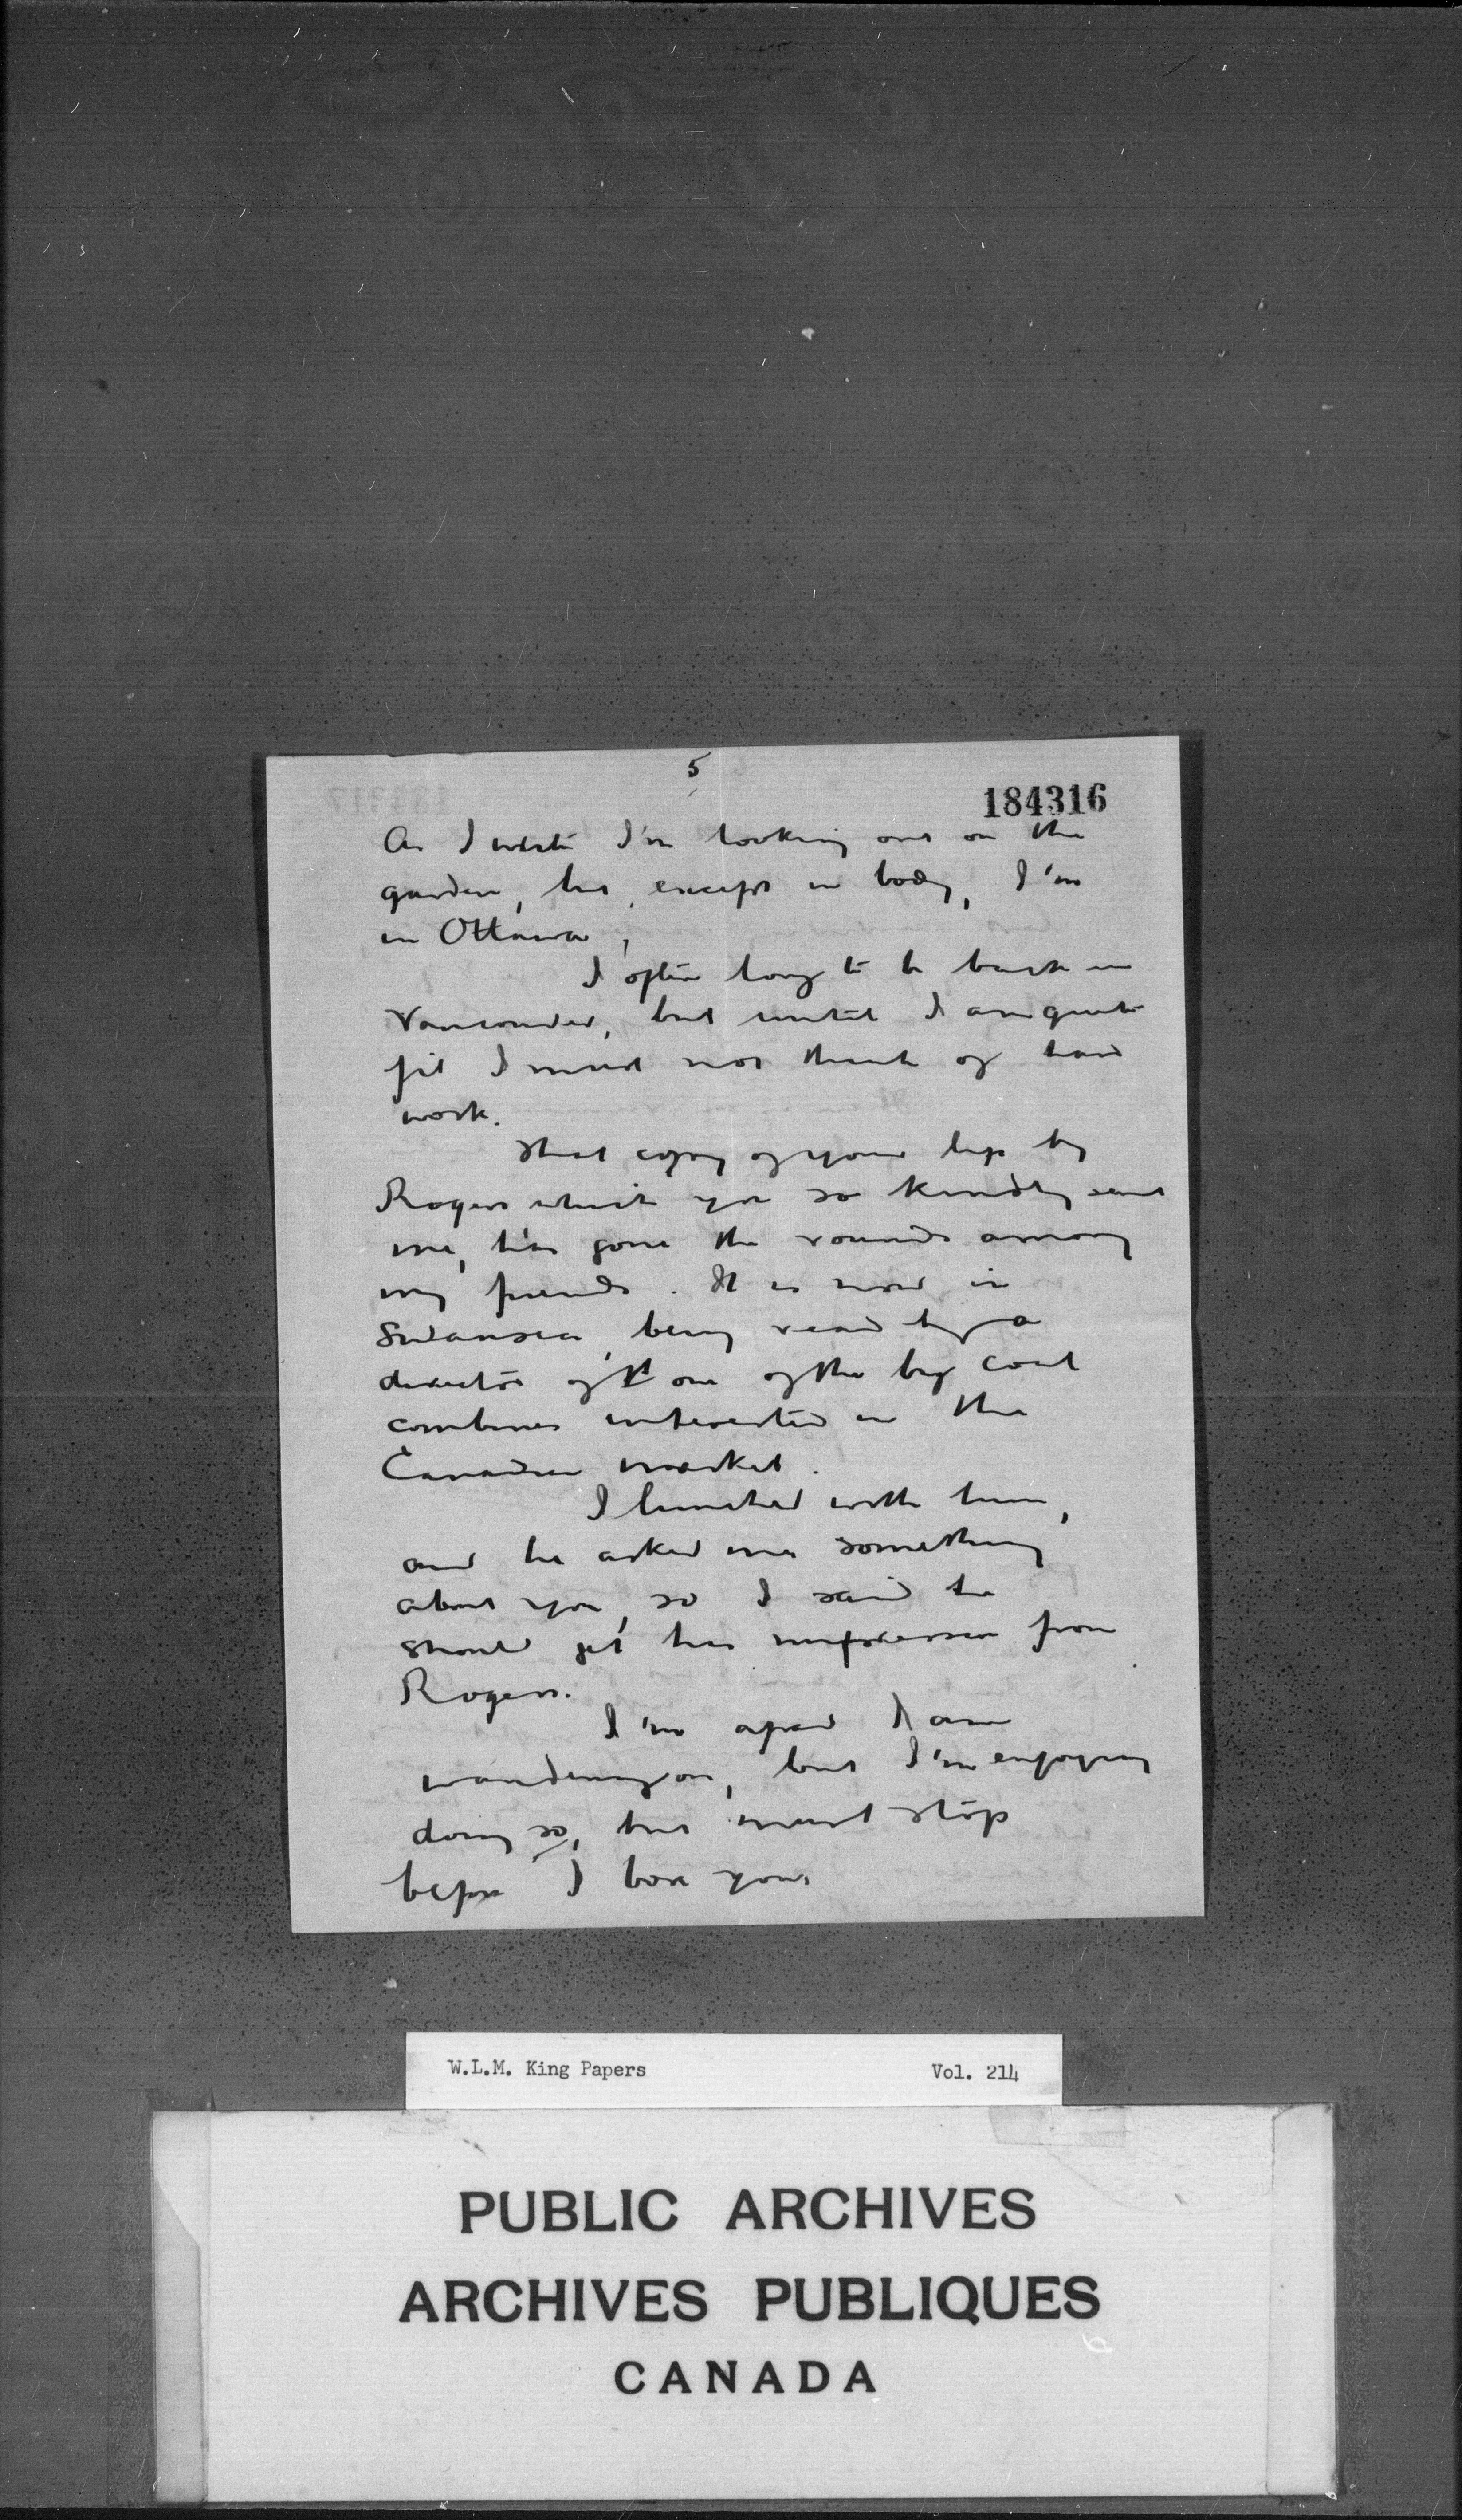 5
184316
As I write I'm looking out on the
garden, but, except in body, I'm
in Ottawa,
I often long to be back in
Vancouver, but until I am quite
fit I must not think of hard
work.
That copy of your life by
Rogers which you so kindly sent
me, has gone the rounds among
my friends. It is now in
Swansea, being read by a
director of one of the big coal
combines interested in the
Canadian market.
I lunched with him,
and he asked me something
about you, so I said he
should get his impression from
Rogers.
I'm afraid I am
wandering on, but I'm enjoying
doing so, but must stop
before I bore you.
W.L.M. King Papers
Vol. 214
PUBLIC ARCHIVES
ARCHIVES PUBLIQUES
CANADA